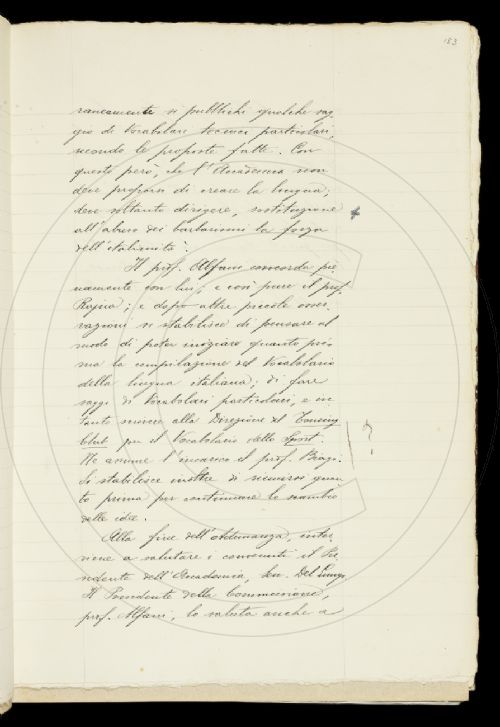 183
raneamente si pubblichi qualche sag-
gio di Vocabolari tecnici particolari,
secondo le proposte fatte. Con
questo però, che l'Accademia non
deve proporsi di creare la lingua;
deve soltanto dirigere, sostituzione
all'abuso dei barbarismi la forza
dell'italianità.
Il prof. Alfani concorda pie-
namente con lui, e così pure il prof.
Rajna; e dopo altre piccole osser-
vazioni si stabilisce di pensare al
modo di poter iniziare quanto pri-
ma la compilazione del Vocabolario
della lingua italiana; di fare
saggi di Vocabolari particolari, e in-
tanto scrivere alla Direzione del Touring
Club per il Vocabolario dello Sport.
Ne assume l'incarico il prof. Biagi.
Si stabilisce inoltre di riunirsi quan-
to prima per continuare lo scambio
delle idee.
Alla fine dell'Adunanza, inter-
viene a salutare i convenuti il Pre-
sidente dell'Accademia, Sen. Del Lungo.
Il Presidente della Commissione,
prof. Alfani, lo saluta anche a